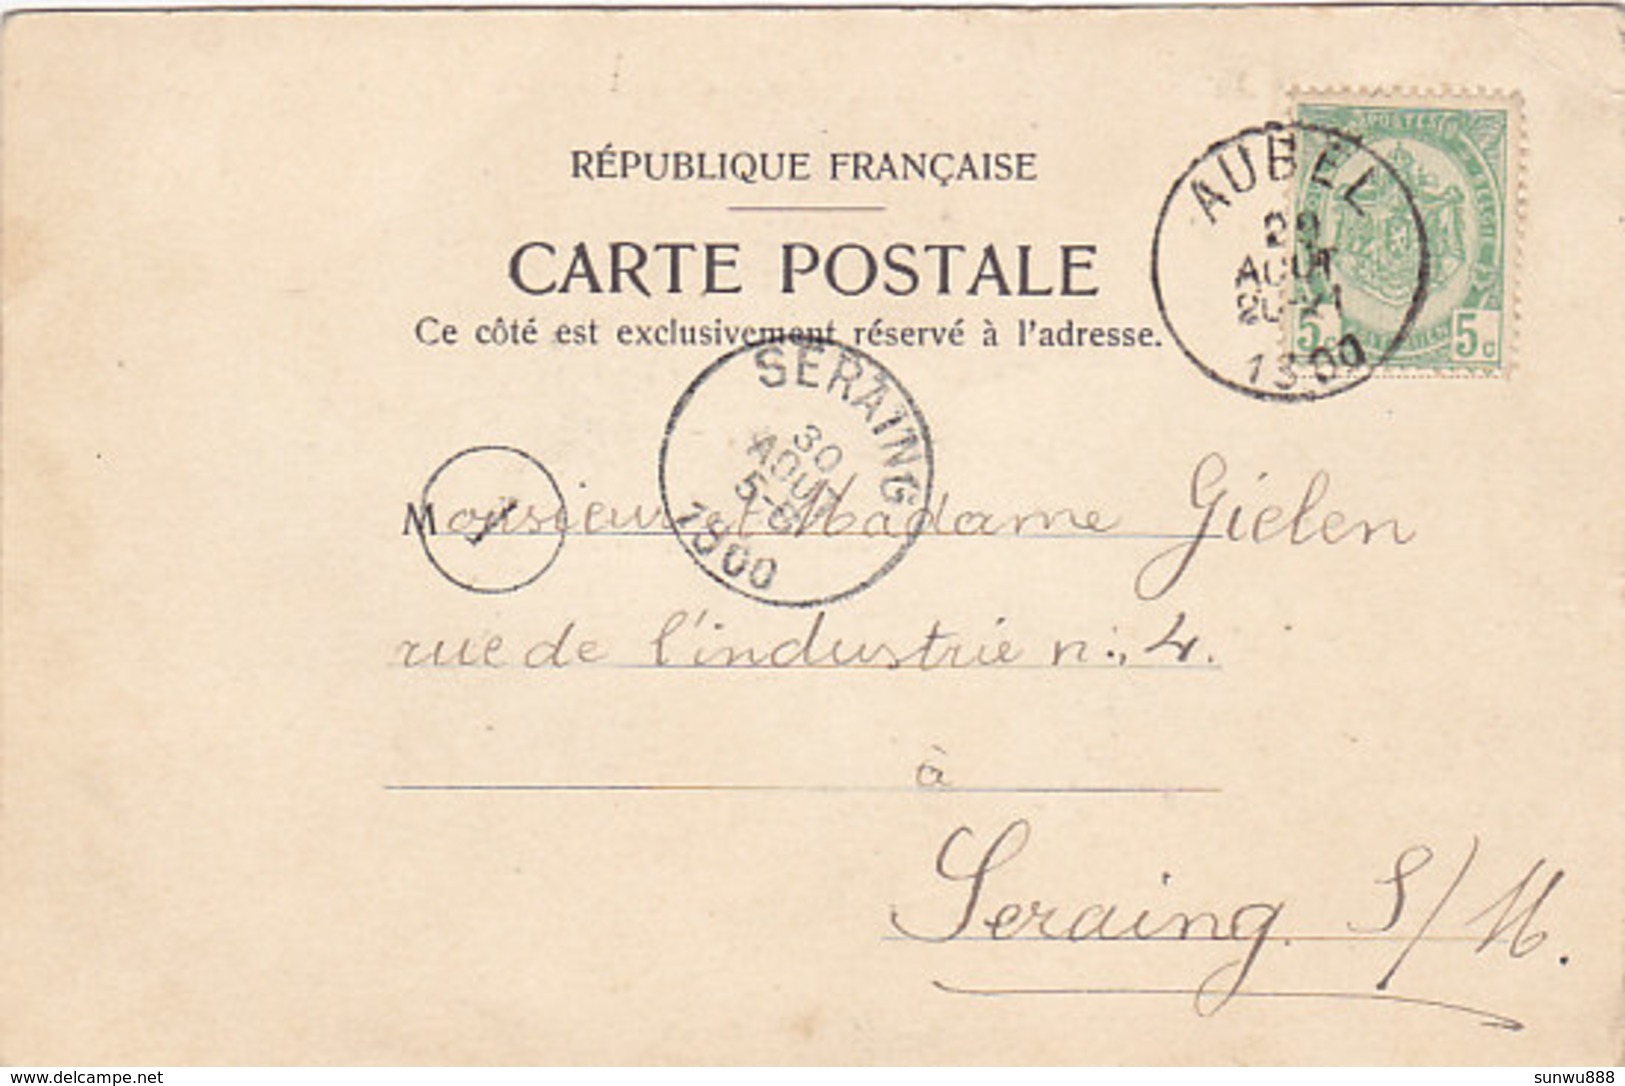 RÉPUBLIQUE FRANÇAISE
CARTE POSTALE
Ce côté est exclusivement réservé à l'adresse.
POSTES
AUBEL
AOUT
1900
5c 5c
SERAING
30
AOUT
1900
1
Monsieur et Madame Gielen
rue de l'industrie n:, 4.
à
Seraing S/M.
www.delcampe.net
sunwu888